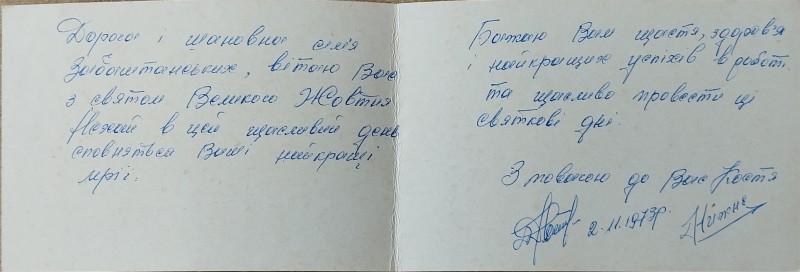 Дорога і шановна сім'я
Забаштанських, вітаю Вас
з святом Великого Жовтня
Нехай в цей щасливий день
сповняться Ваші найкращі
мрії.
Бажаю Вам щастя, здоров'я
і найкращих успіхів в роботі
та щасливо провести ці
святкові дні.
З повагою до Вас Костя
2.11.1973р.